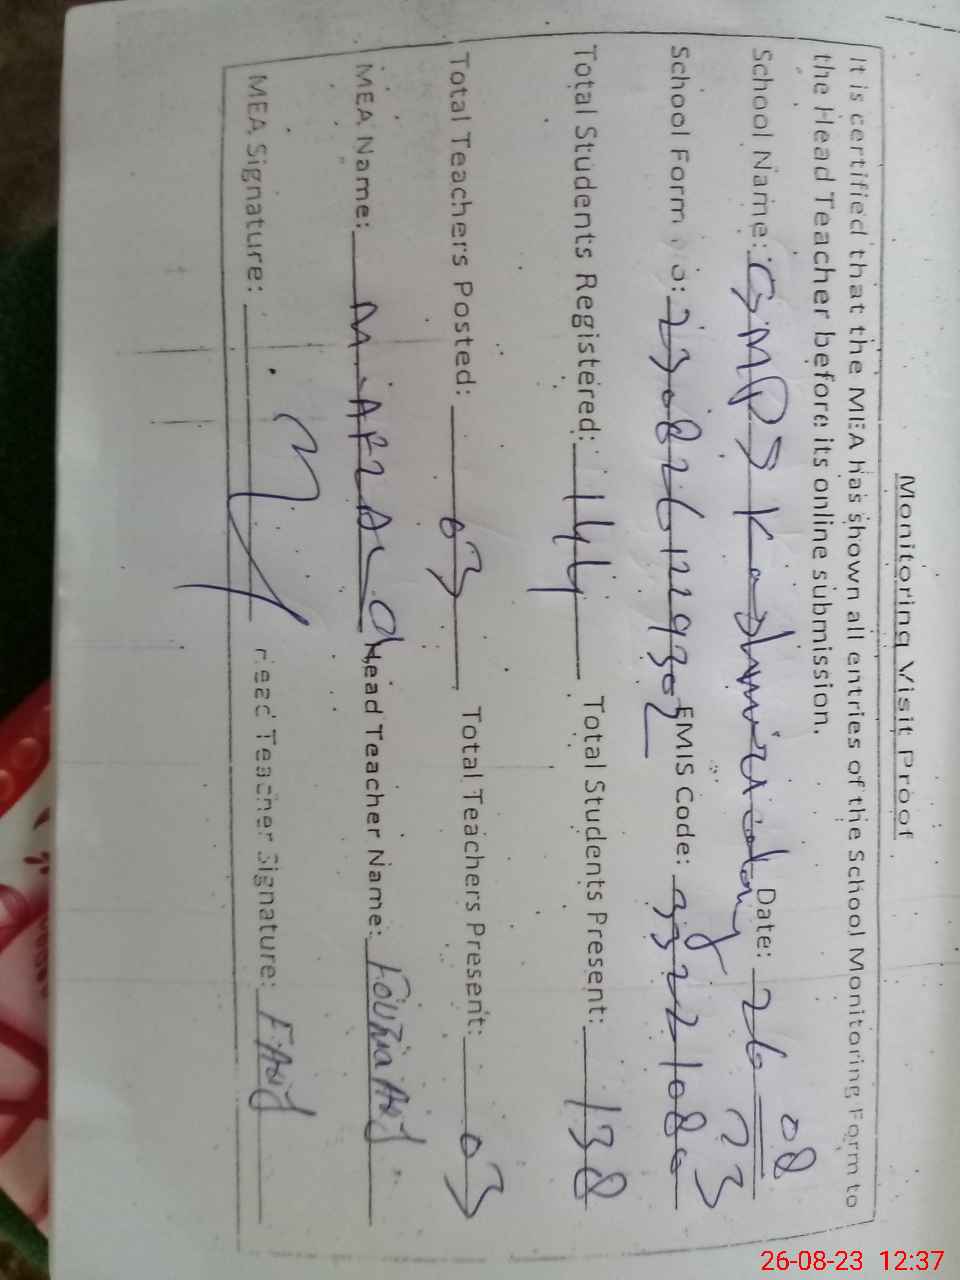 Monitoring Visit Proof
It is certified that the MEA has shown all entries of the School Monitoring Form to
the Head Teacher before its online submission.
School Name: GMPS Date: 26 08 23
School Form No: EMIS Code:
Total Students Registered: 144 Total Students Present: 138
Total Teachers Posted: 03 Total Teachers Present: 03
MEA Name: M. AFZAL Head Teacher Name: Fouzia
MEA Signature: Head Teacher Signature:
26-08-23 12:37